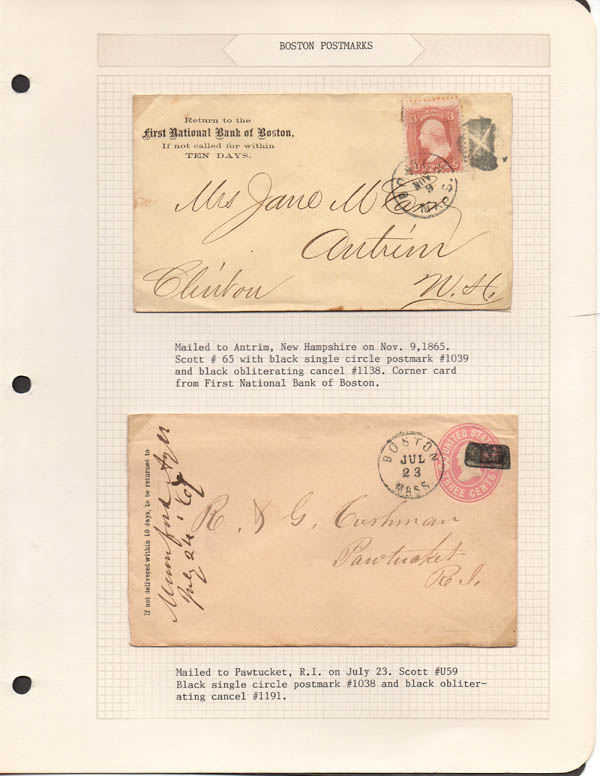 BOSTON POSTMARKS
Return to the
First National Bank of Boston,
If not called for within
TEN DAYS.
3
Mrs Jane
Antrim
Clinton
N.H.
Mailed to Antrim, New Hampshire on Nov. 9,1865.
Scott # 65 with black single circle postmark #1039
and black obliterating cancel #1138. Corner card
from First National Bank of Boston.
If not delivered within 10 days, to be returned to
BOSTON
JUL
23
MASS.
UNITED STA
THREE CENTS
R. & G. Cushman
Pawtucket
R.I.
Mailed to Pawtucket, R.I. on July 23. Scott #U59
Black single circle postmark #1038 and black obliter-
ating cancel #1191.